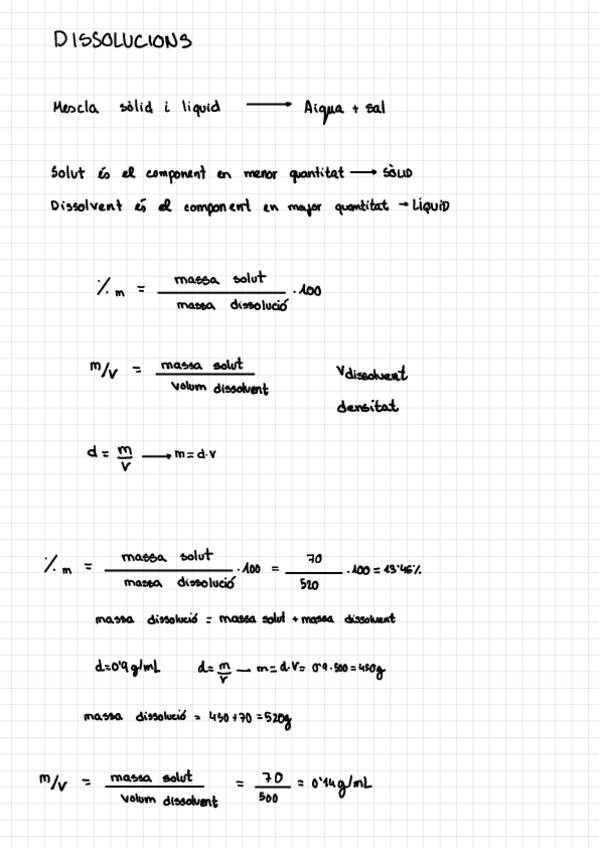 DISSOLUCIONS
Mescla sòlid i líquid ⟶ Aigua + sal
Solut és el component en menor quantitat ⟶ SÒLID
Dissolvent és el component en major quantitat → LÍQUID
%m = massa solut / massa dissolució · 100
m/v = massa solut / volum dissolvent
Vdissolvent
densitat
d = m/v ⟶ m = d·v
%m = massa solut / massa dissolució · 100 = 70 / 520 · 100 = 13'46%
massa dissolució = massa solut + massa dissolvent
d=0'9 g/mL d= m/v — m= d·v= 0'9·500=450g
massa dissolució = 450+70=520g
m/v = massa solut / volum dissolvent = 70 / 500 = 0'14 g/mL